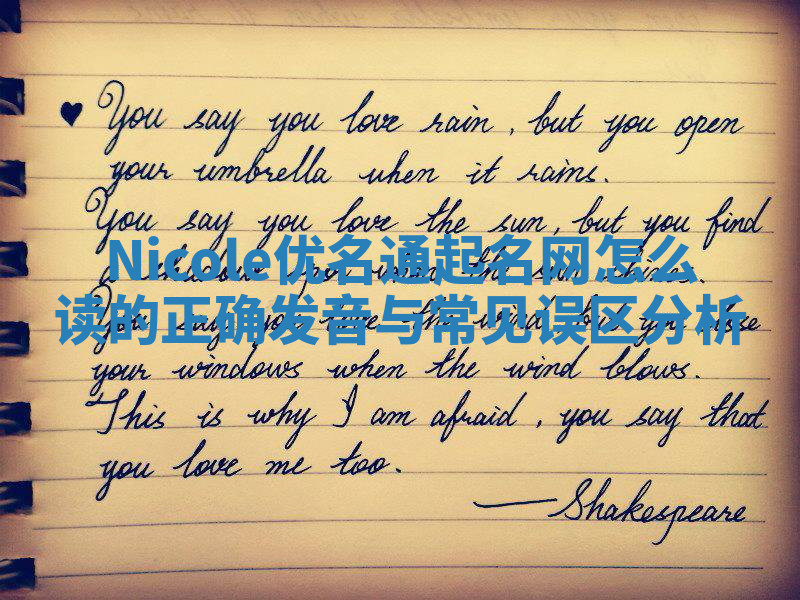 ♥ You say you love rain, but you open
your umbrella when it rains.
You say you love the sun, but you find
a shadow spot when the sun shines.
Nicole优名通起名网怎么
读的正确发音与常见误区分析
You say you love the wind, but you close
your windows when the wind blows.
This is why I am afraid, you say that
you love me too.
—Shakespeare